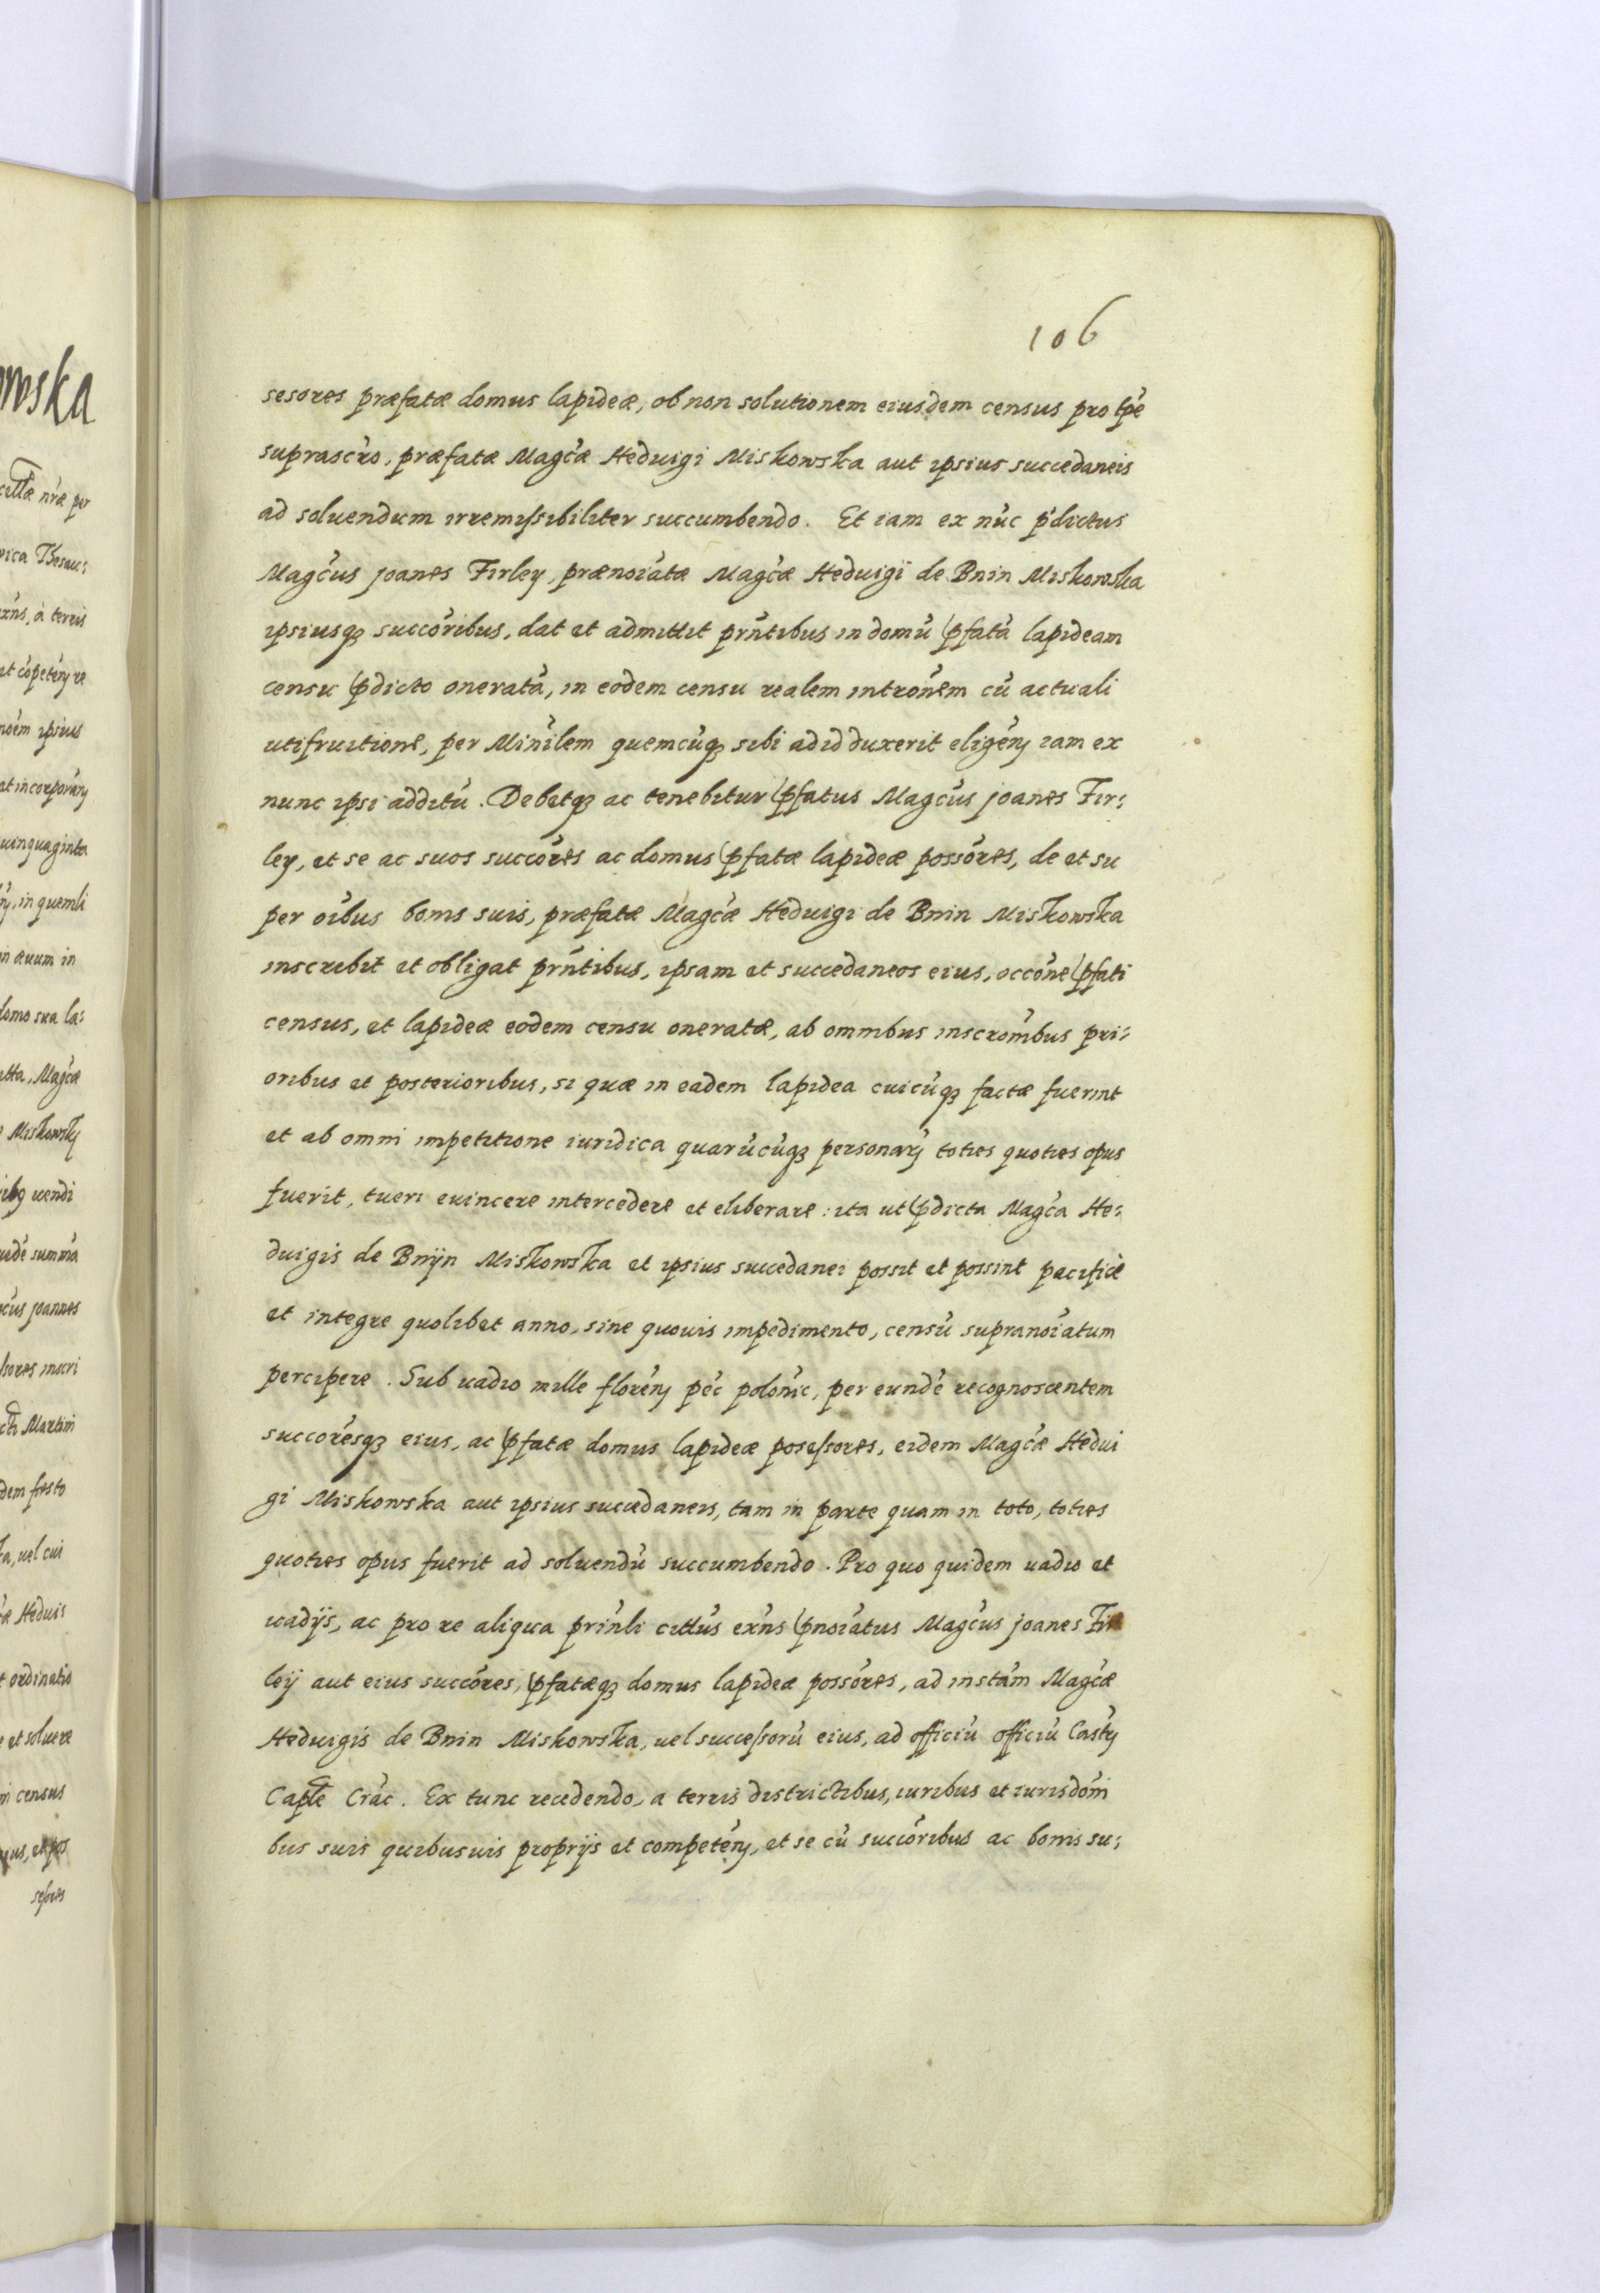 106
sesores præfatæ domus lapideæ, ob non solutionem eiusdem census pro tp̃e
suprascr̃o, præfatæ Magc̃æ Heduigi Miskowska aut ipsius succedaneis
ad soluendum irremissibiliter succumbendo. Et iam ex nũc p̃dictus
Magc̃us Joanes Firley, prænoĩatæ Magc̃æ Heduigi de Bnin Miskowska
ipsiusq₃ succõribus, dat et admittit prñtibus in domũ p̃fatã lapideam
censu p̃dicto oneratã, in eodem censu realem intrõnem cũ actuali
utifruitione, per Minĩlem quemcũq₃ sibi ad id duxerit eligẽn̄ iam ex
nunc ipsi additũ. Debetq₃ ac tenebitur p̃fatus Magc̃us Joanes Fir:
ley, et se ac suos succõres ac domus p̃fatæ lapideæ possõres, de et su
per oĩbus bonis suis, præfatæ Magc̃æ Heduigi de Bnin Miskowska
inscribit et obligat prñtibus, ipsam et succedaneos eius, occõne p̃fati
census, et lapideæ eodem censu oneratæ, ab omnibus inscrõnibus pri:
oribus et posterioribus, si quæ in eadem lapidea cuicũq₃ factæ fuerint
et ab omni impetitione iuridica quarũcũq₃ personarũ toties quoties opus
fuerit, tueri euincere intercedere et eliberare: ita ut p̃dicta Magc̃a He:
duigis de Bnijn Miskowska et ipsius succedanei possit et possint pacificè
et integre quolibet anno, sine quouis impedimento, censũ supranoĩatum
percipere. Sub uadio mille florẽn̄ pẽc polõnic, per eundẽ recognoscentem
succõresq₃ eius, ac p̃fatæ domus lapideæ posessores, eidem Magc̃æ Hedui
gi Miskowska aut ipsius succedaneis, tam in parte quam in toto, toties
quoties opus fuerit ad soluendũ succumbendo. Pro quo quidem uadio et
uadijs, ac pro re aliqua prĩnli citt̃us exñs p̃noĩatus Magc̃us Joanes Fir
leij aut eius succõres, p̃fatæq₃ domus lapideæ possõres, ad instãm Magc̃æ
Heduigis de Bnin Miskowska, uel successorũ eius, ad officiũ officiũ Castr̄
Caplt̃e Crãc. Ex tunc recedendo, a terris districtibus, iuribus et iurisdõni
bus suis quibusuis proprijs et competẽn̄, et se cũ succõribus ac bonis su: